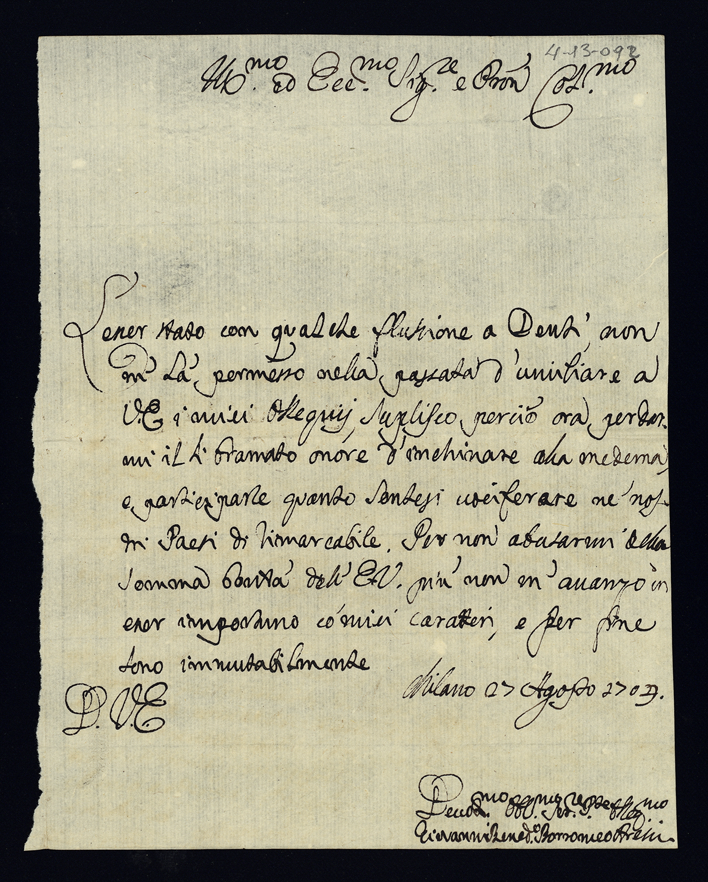 4-13-092
Ill.mo ed Ecc.mo Sig.re e Pron Col.mo
L'esser stato con qualche flussione a Denti, non
m'hà permesso nella passata d'umiliare a
V.E. i miei ossequij, suplisco perciò ora per
mi il bramato onore d'inchinare alla medema,
e participarle quanto sentesi vociferare ne' nos-
tri Paesi di rimarcabile. Per non abusarmi della
somma bontà dell'E.V. più non m'avanzo in
esser importuno cò miei caratteri, e per fine
sono immutabilmente
D.V.E.
Milano 27 Agosto
Giovanni Bened.o Borromeo Aresi